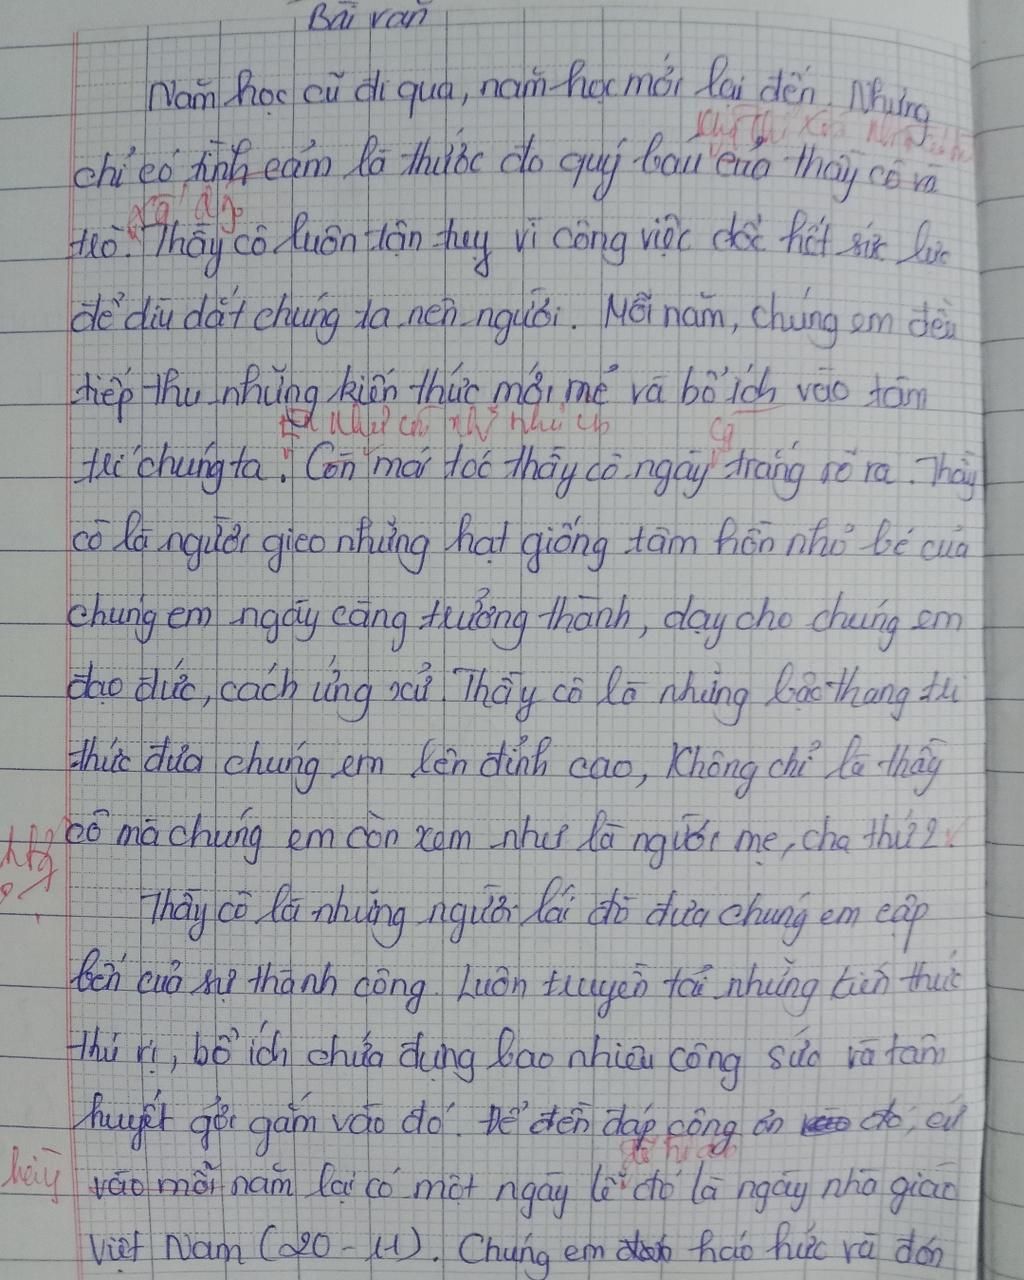 Bài văn
Năm học cũ đi qua, năm học mới lại đến. Nhưng
chỉ có tình cảm là thước đo quý báu của thầy cô và
trò. Thầy cô luôn tận tụy vì công việc dốc hết sức lực
để dìu dắt chúng ta nên người. Mỗi năm, chúng em đều
tiếp thu những kiến thức mới mẻ và bổ ích vào tâm
trí chúng ta. Còn mái tóc thầy cô ngày trắng rõ ra. Thầy
cô là người gieo những hạt giống tâm hồn nhỏ bé của
chúng em ngày càng trưởng thành, dạy cho chúng em
đạo đức, cách ứng xử. Thầy cô là những bậc thang tri
thức đưa chúng em lên đỉnh cao, Không chỉ là thầy
cô mà chúng em còn xem như là người mẹ, cha thứ 2.
Thầy cô là những người lái đò đưa chúng em cập
bến của sự thành công. Luôn truyền tải những kiến thức
thú vị, bổ ích chứa đựng bao nhiêu công sức và tâm
huyết gởi gắm vào đó. Để đền đáp công ơn đó, cứ
vào mỗi năm lại có một ngày lễ đó là ngày nhà giáo
Việt Nam (20-11). Chúng em háo hức và đón